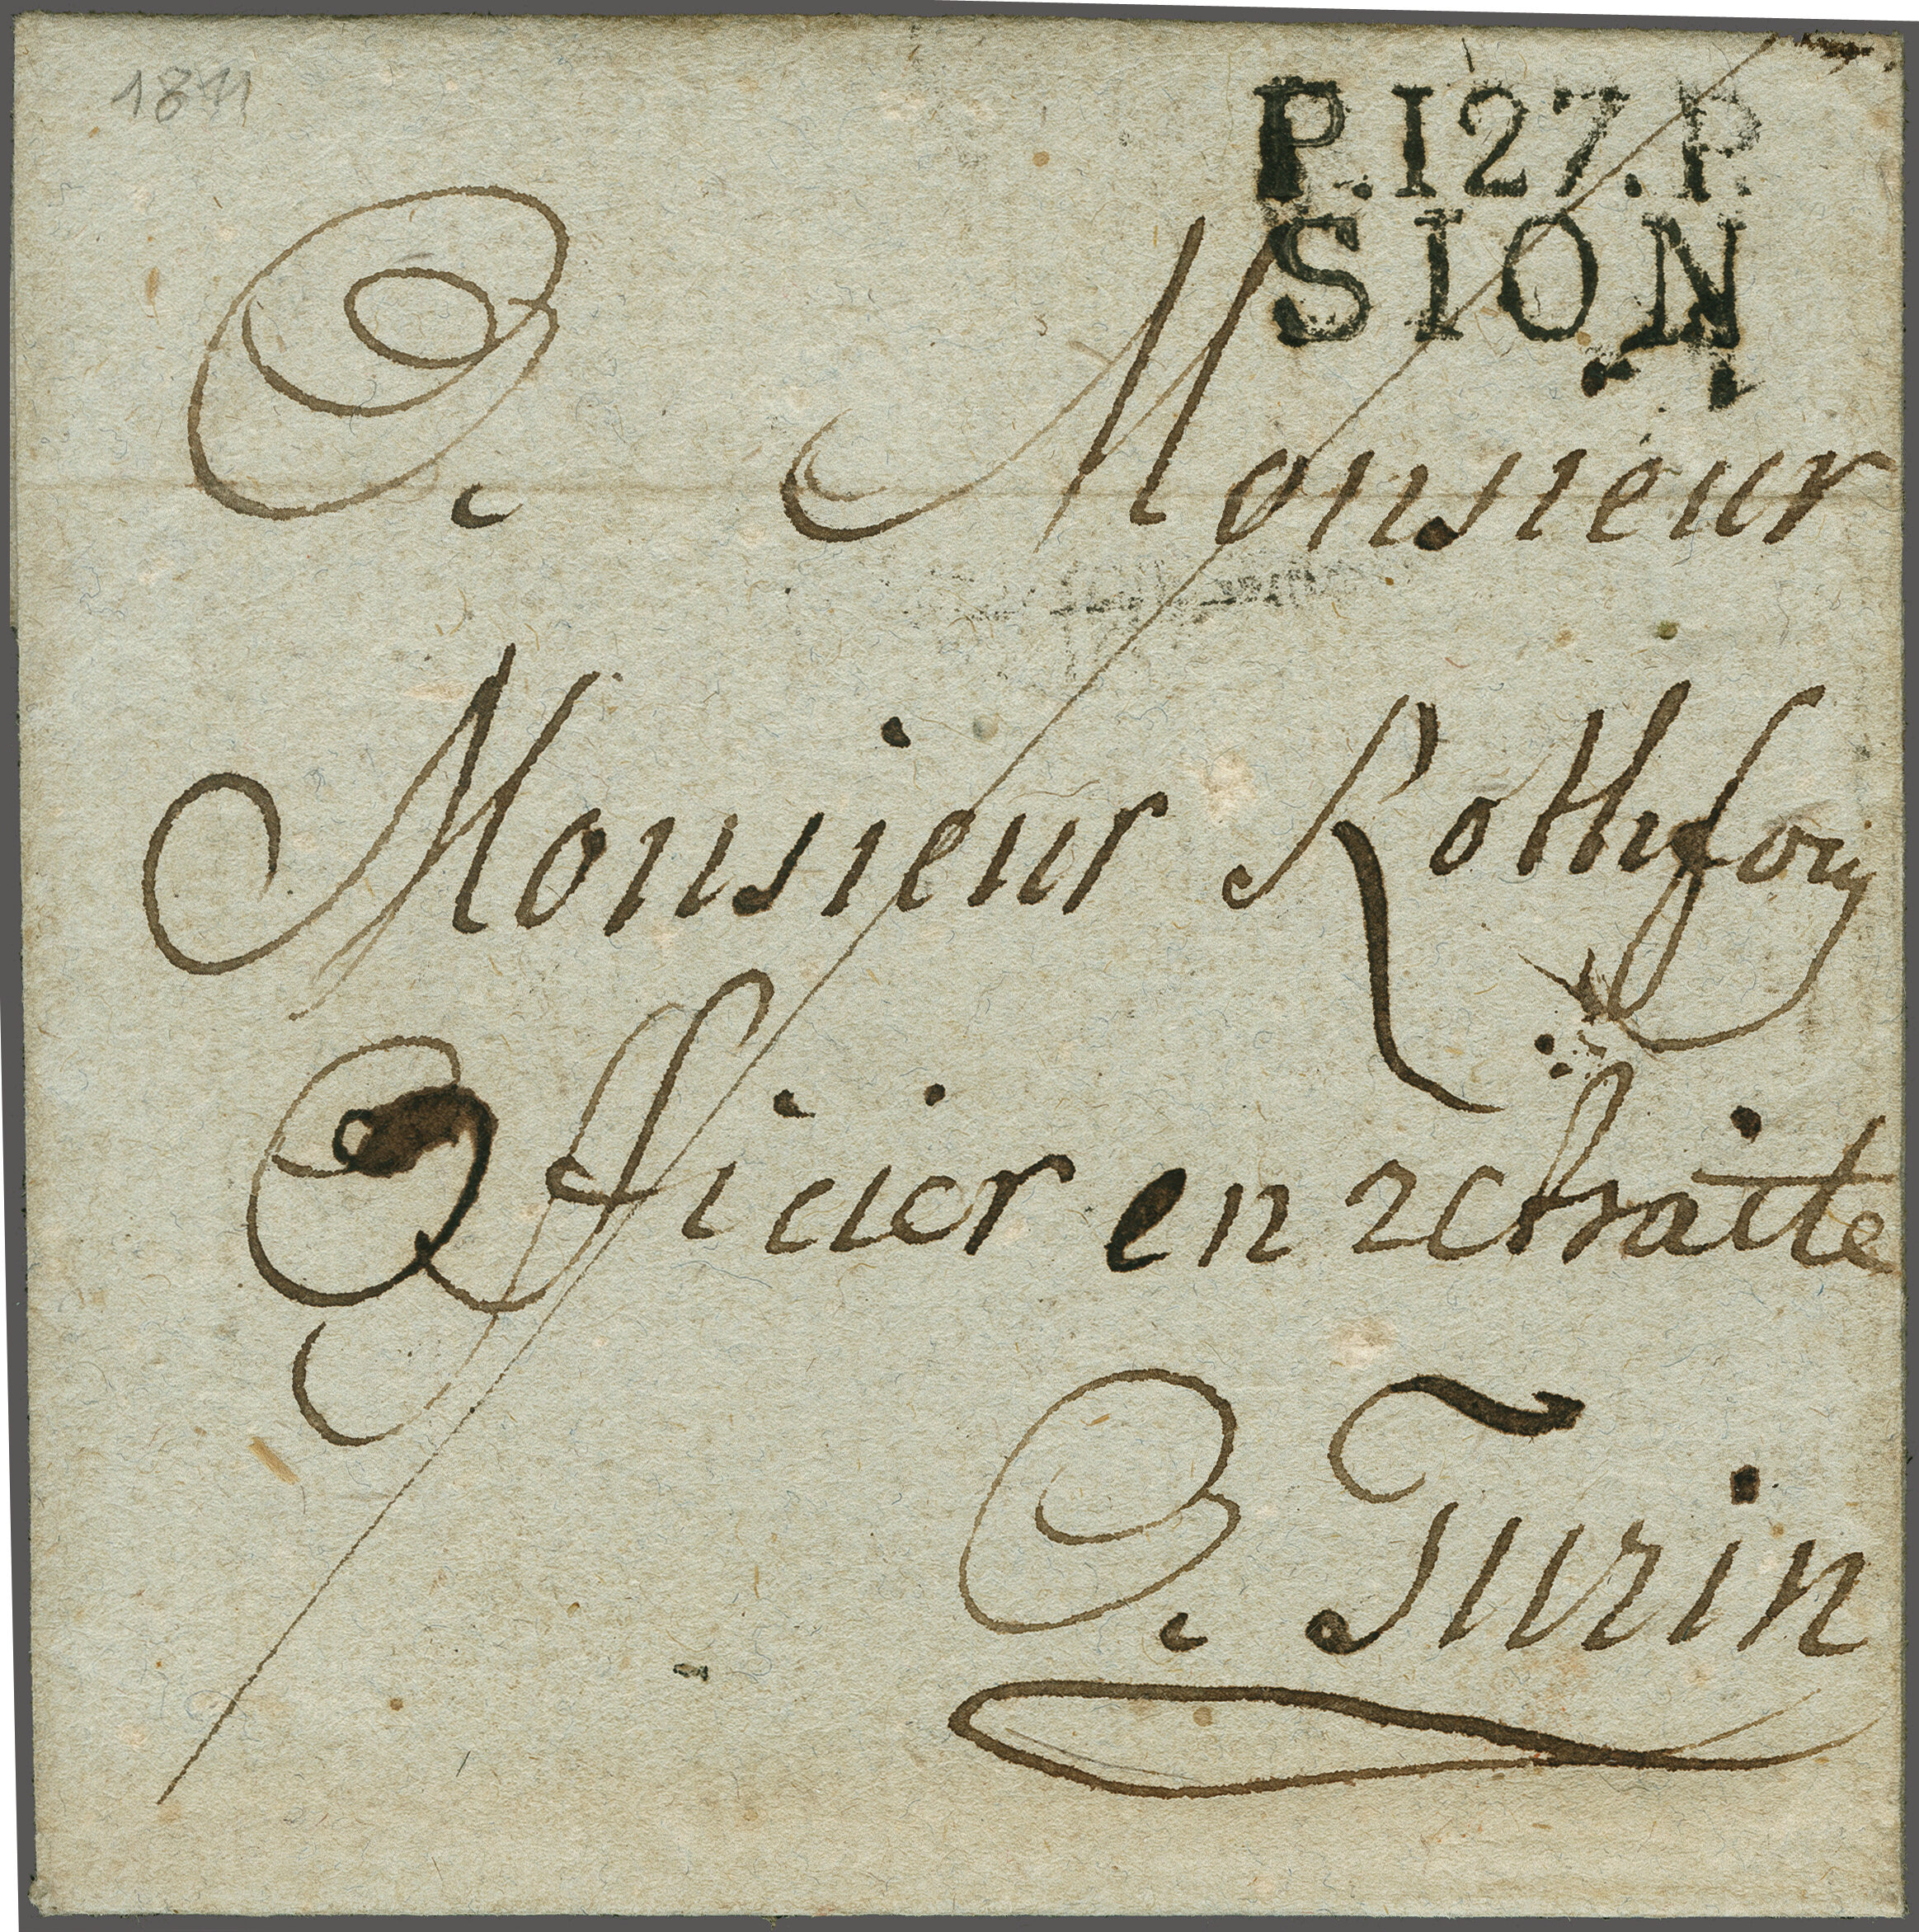 1811
P.127.P.
SION
A Monsieur
Monsieur
Officier en retraitte
A Turin